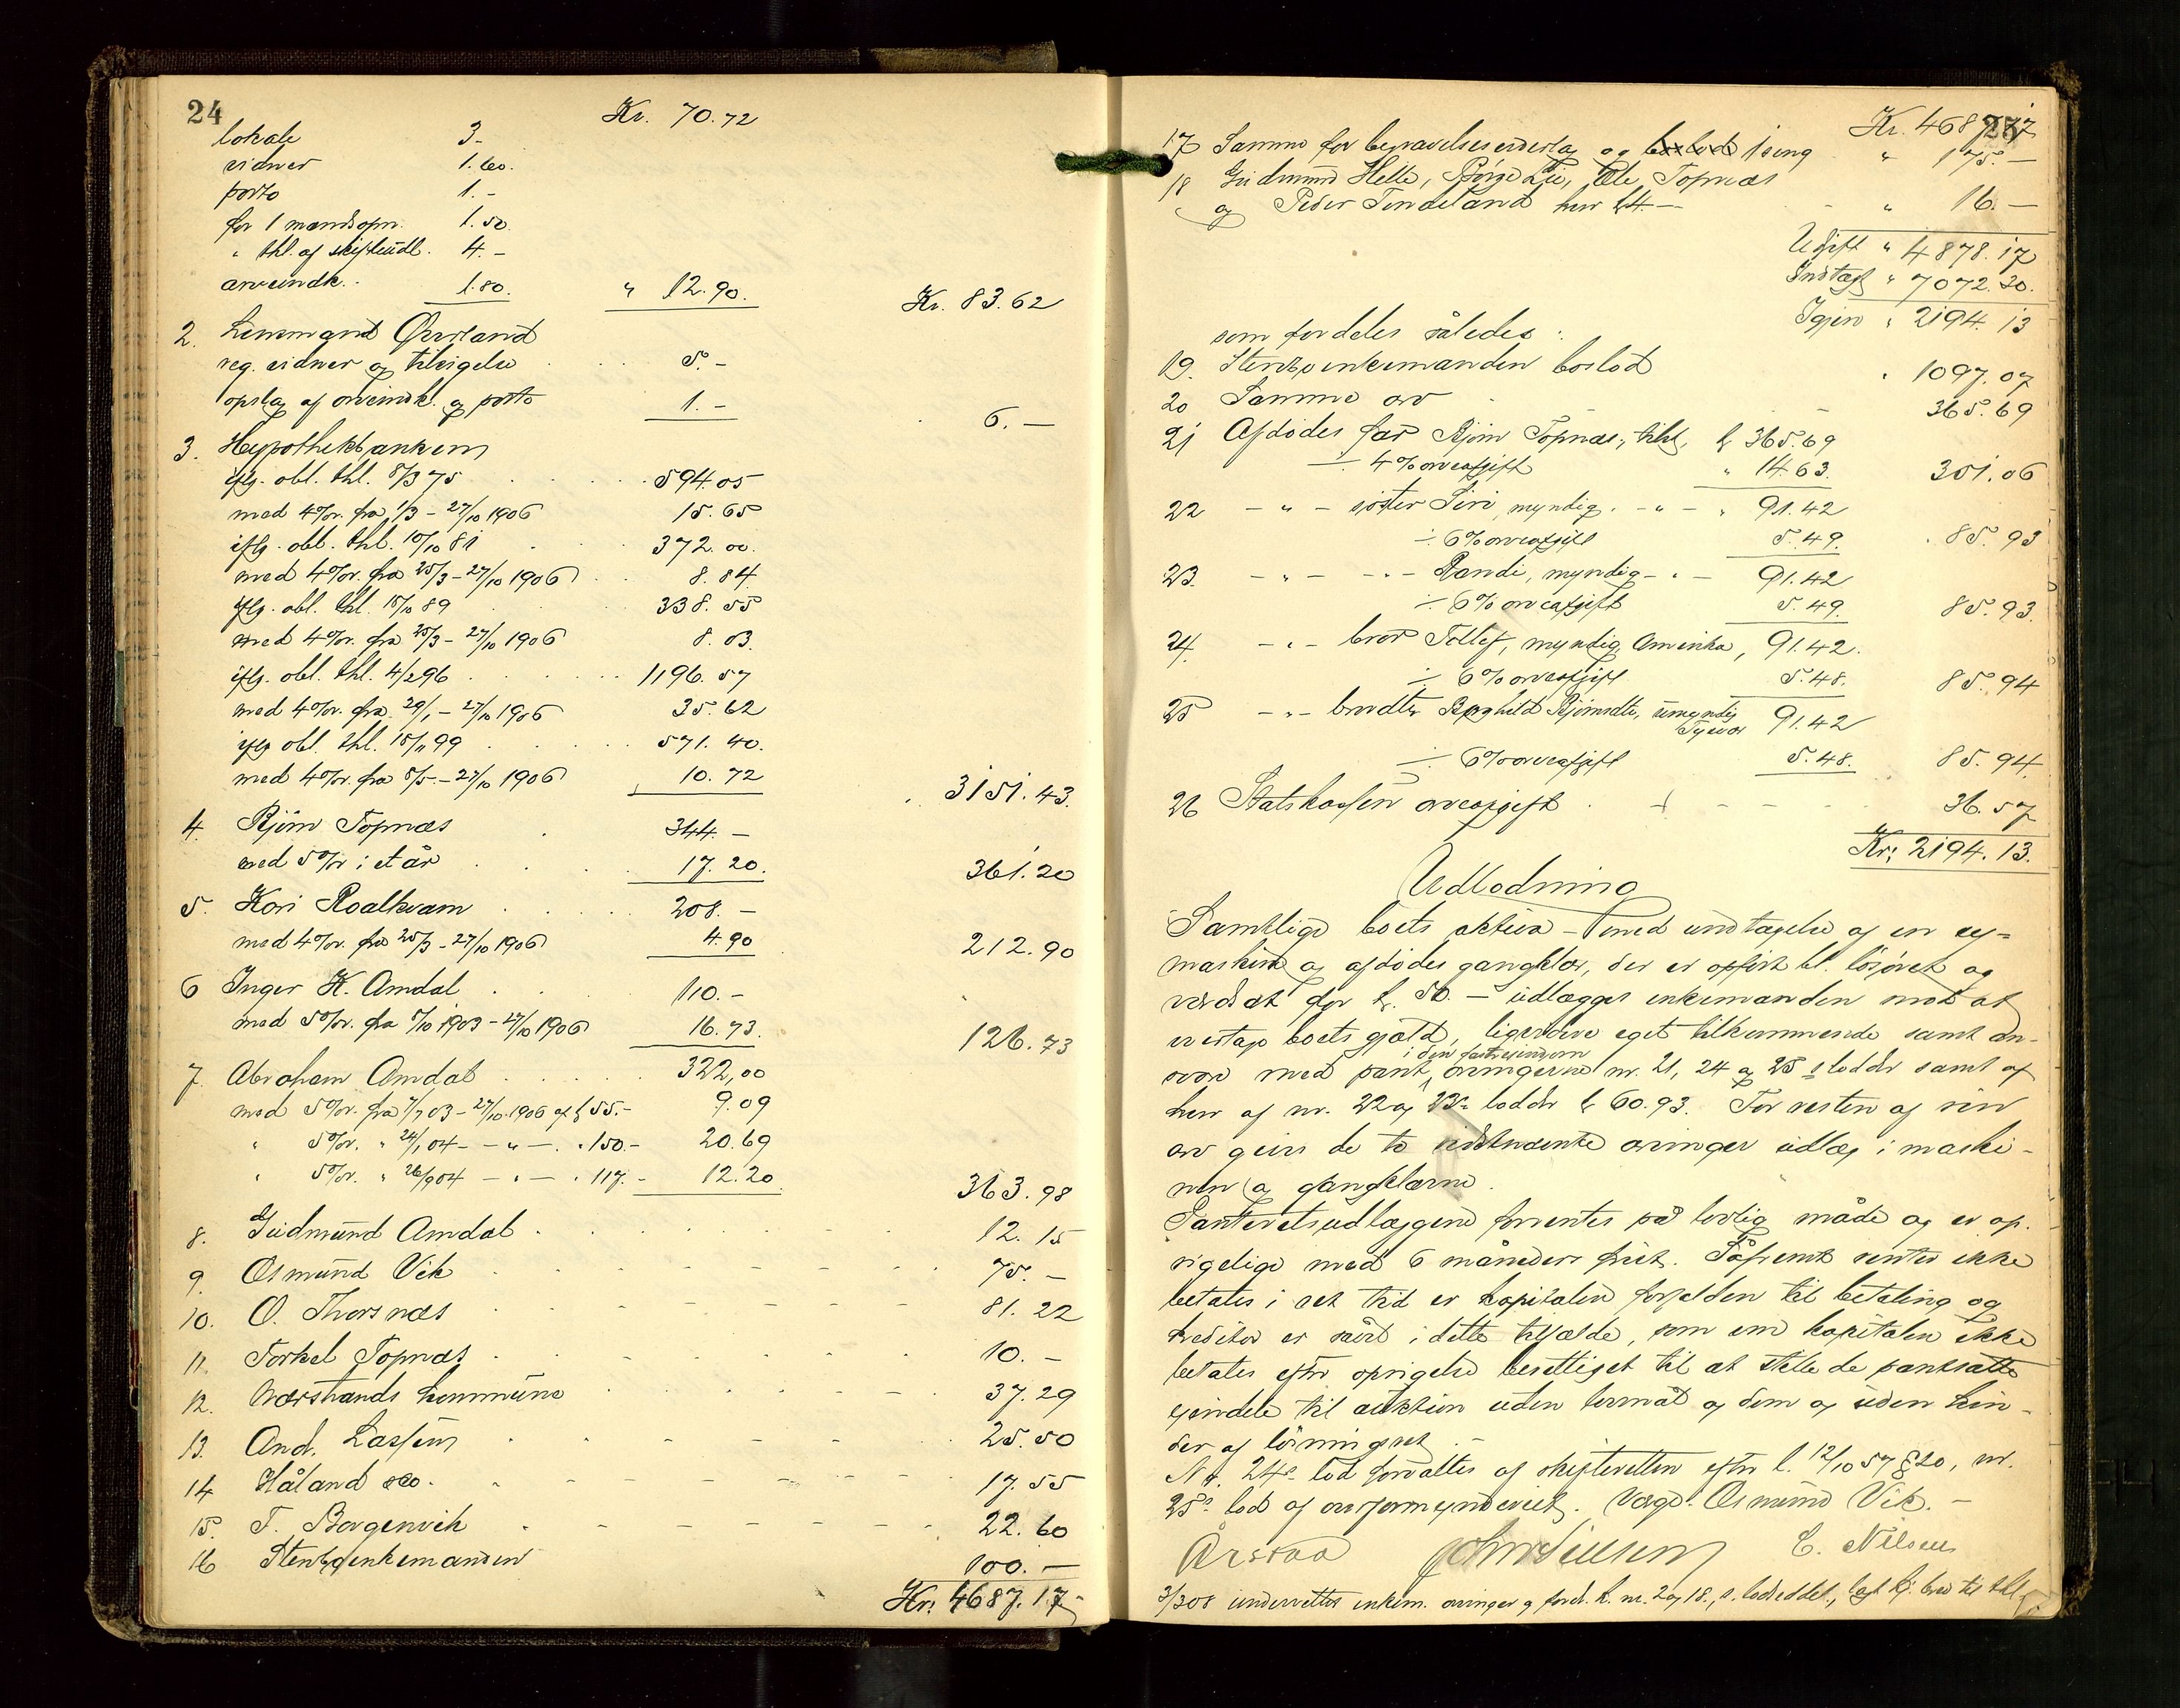 24
Kr. 70.72
lokale 3-
vidner 1.60.
porto 1.-
for 1 mandsopn. 1.50.
" thl. af skifteudl. 4.-
arveindk. 1.80. " 12.90. Kr. 83.62
2. Lensmand Øvrland
reg. vidner og tilsigelse 5.-
opslag af arveindk. og porto 1.- 6.—
3. Hypothekbanken
iflg. obl. thl. 8/3 75 594.05
med 4% r. fra 1/3 - 27/10 1906 15.65
iflg. obl. thl. 10/10 81 372.00.
med 4% r. fra 25/3 - 27/10 1906 8.84
iflg. obl. thl. 15/10 89 338.55
med 4% r. fra 25/3 - 27/10 1906 8.03.
iflg. obl. thl. 4/2 96 1196.57
med 4% r. fra 29/1 - 27/10 1906 35.62
iflg obl. thl. 15/11 99 571.40.
med 4% r. fra 8/5 - 27/10 1906 10.72 3151.43.
4. Bjørn Topnæs 344.-
med 5% r i et år 17.20. 361.20
5. Kari Roalkvam 208.-
med 4% r. fra 25/3 - 27/10 1906 4.90 212.90
6 Inger K. Amdal 110.-
med 5% r. fra /10 1903 - 27/10 1906 16.73. 126.73
7. Abraham Amdal 322,00
med 5% r. fra 7/7 03 - 27/10 1906 af k 55.- 9.09
" 5% r. " 24/1 04 - " - " 150.- 20.69
" 5% r. " 26/9 04 - " - " 117.- 12.20 363.98
8. Gudmund Amdal 12.15
9. Osmund Vik 75.-
10. O. Thorsnæs 81.22
11. Torkel Topnæs 10.-
12. Nærstrands kommune 37.29
13. And. Lassen 25.50
14 Håland & co. 17.55
15. T. Borgenvik 22.60
16 Stenbo enkemanden 100.—
Kr. 4687.17
25
Kr. 4687.17
17 Samme for begravelses og boslod i seng " 175.—
18 Gudmund Helle, Børge Lie, Ole Topnæs
og Peder Tendeland hver k 4.— " 16.—
Udgift " 4878.17
Indtægt " 7072.30.
Igjen " 2194.13
som fordeles således:
19. Stenbo enkemanden boslod 1097.07
20 Samme arv 365.69
21 Afdødes far Bjørn Topnæs, tilst. k 365.69
÷ 4% arveafgift " 14.63. 351.06
22 - " - søster Siri, myndig. - " - " 91.42
÷ 6% arveafgift 5.49. 85.93
23. - " - - " - Randi, myndig - " - 91.42
÷ 6% arveafgift 5.49. 85.93.
24. - " - bror Tollef, myndig, Amerika, 91.42.
÷ 6% arveafgift 5.48. 85.94
25 - " - brordtr. Borghild Bjørnsdtr, umyndig
Tysvær 91.42
÷ 6% arveafgift 5.48. 85.94.
26 Statskassen arveafgift 36.57
Kr. 2194.13.
Udlodning
Samtlige boets aktiva - med undtagelse af en sy=
maskine og afdødes gangklær, der er opført bl. løsøret og
værdsat for k. 50.— udlægges enkemanden mod at
overtage boets gjæld, ligesom eget tilkommende samt an-
svar med pant i den faste eiendom arvingerne nr. 21, 24 og 25s lodder samt af
hver af nr. 22 og 23s lodder k 60.93. For resten af sin
arv gives de to sidstnævnte arvinger udlæg i maski-
nen og gangklærne.
Panteretsudlæggene forrentes på lovlig måde og er op-
sigelige med 6 måneders frist. Såfremt renter ikke
betales i ret tid er kapitalen forfalden til betaling og
kreditor er såvel i dette tilfælde, som om kapitalen ikke
betales efter opsigelse berettiget til at stille de pantsatte
eiendele til auktion uden lovmål og dom og uden hin-
der af løsningsret.
Nr. 24s lod forvaltes af skifteretten efter l. 12/10 57 § 20, nr.
25s lod af overformynderiet. Værge: Osmund Vik.—
Årstad E. Nilsen
3/3 08 underrettes enkem. arvinger og ford. h. nr. 2 og 18.,